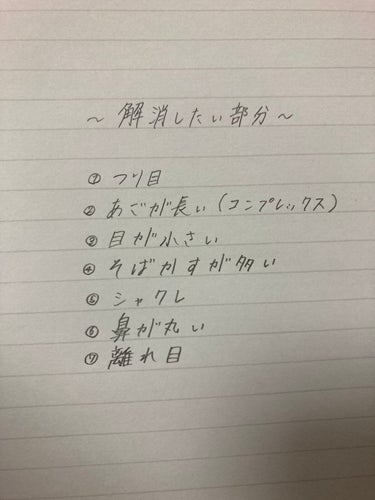 ～解消したい部分～
① つり目
② あごが長い(コンプレックス)
③ 目が小さい
④ そばかすが多い
⑤ シャクレ
⑥ 鼻が丸い
⑦ 離れ目